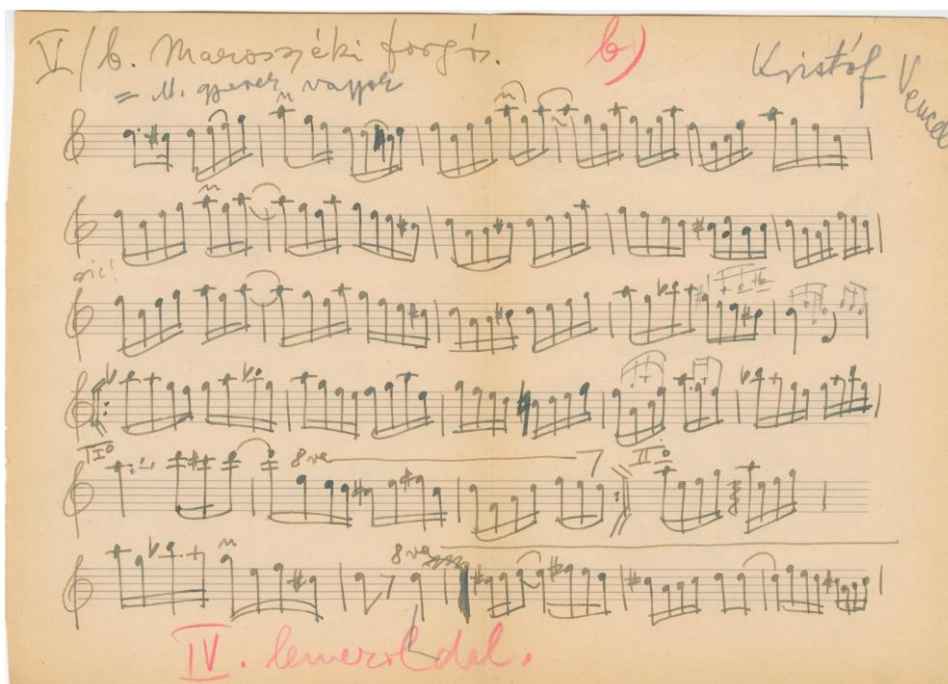 V/b. Marosszéki forgós. b) Kristóf Vencel
= M. gyerek vagyok
sic!
I⁰ 8va II⁰
8va
IV. lemezoldal.